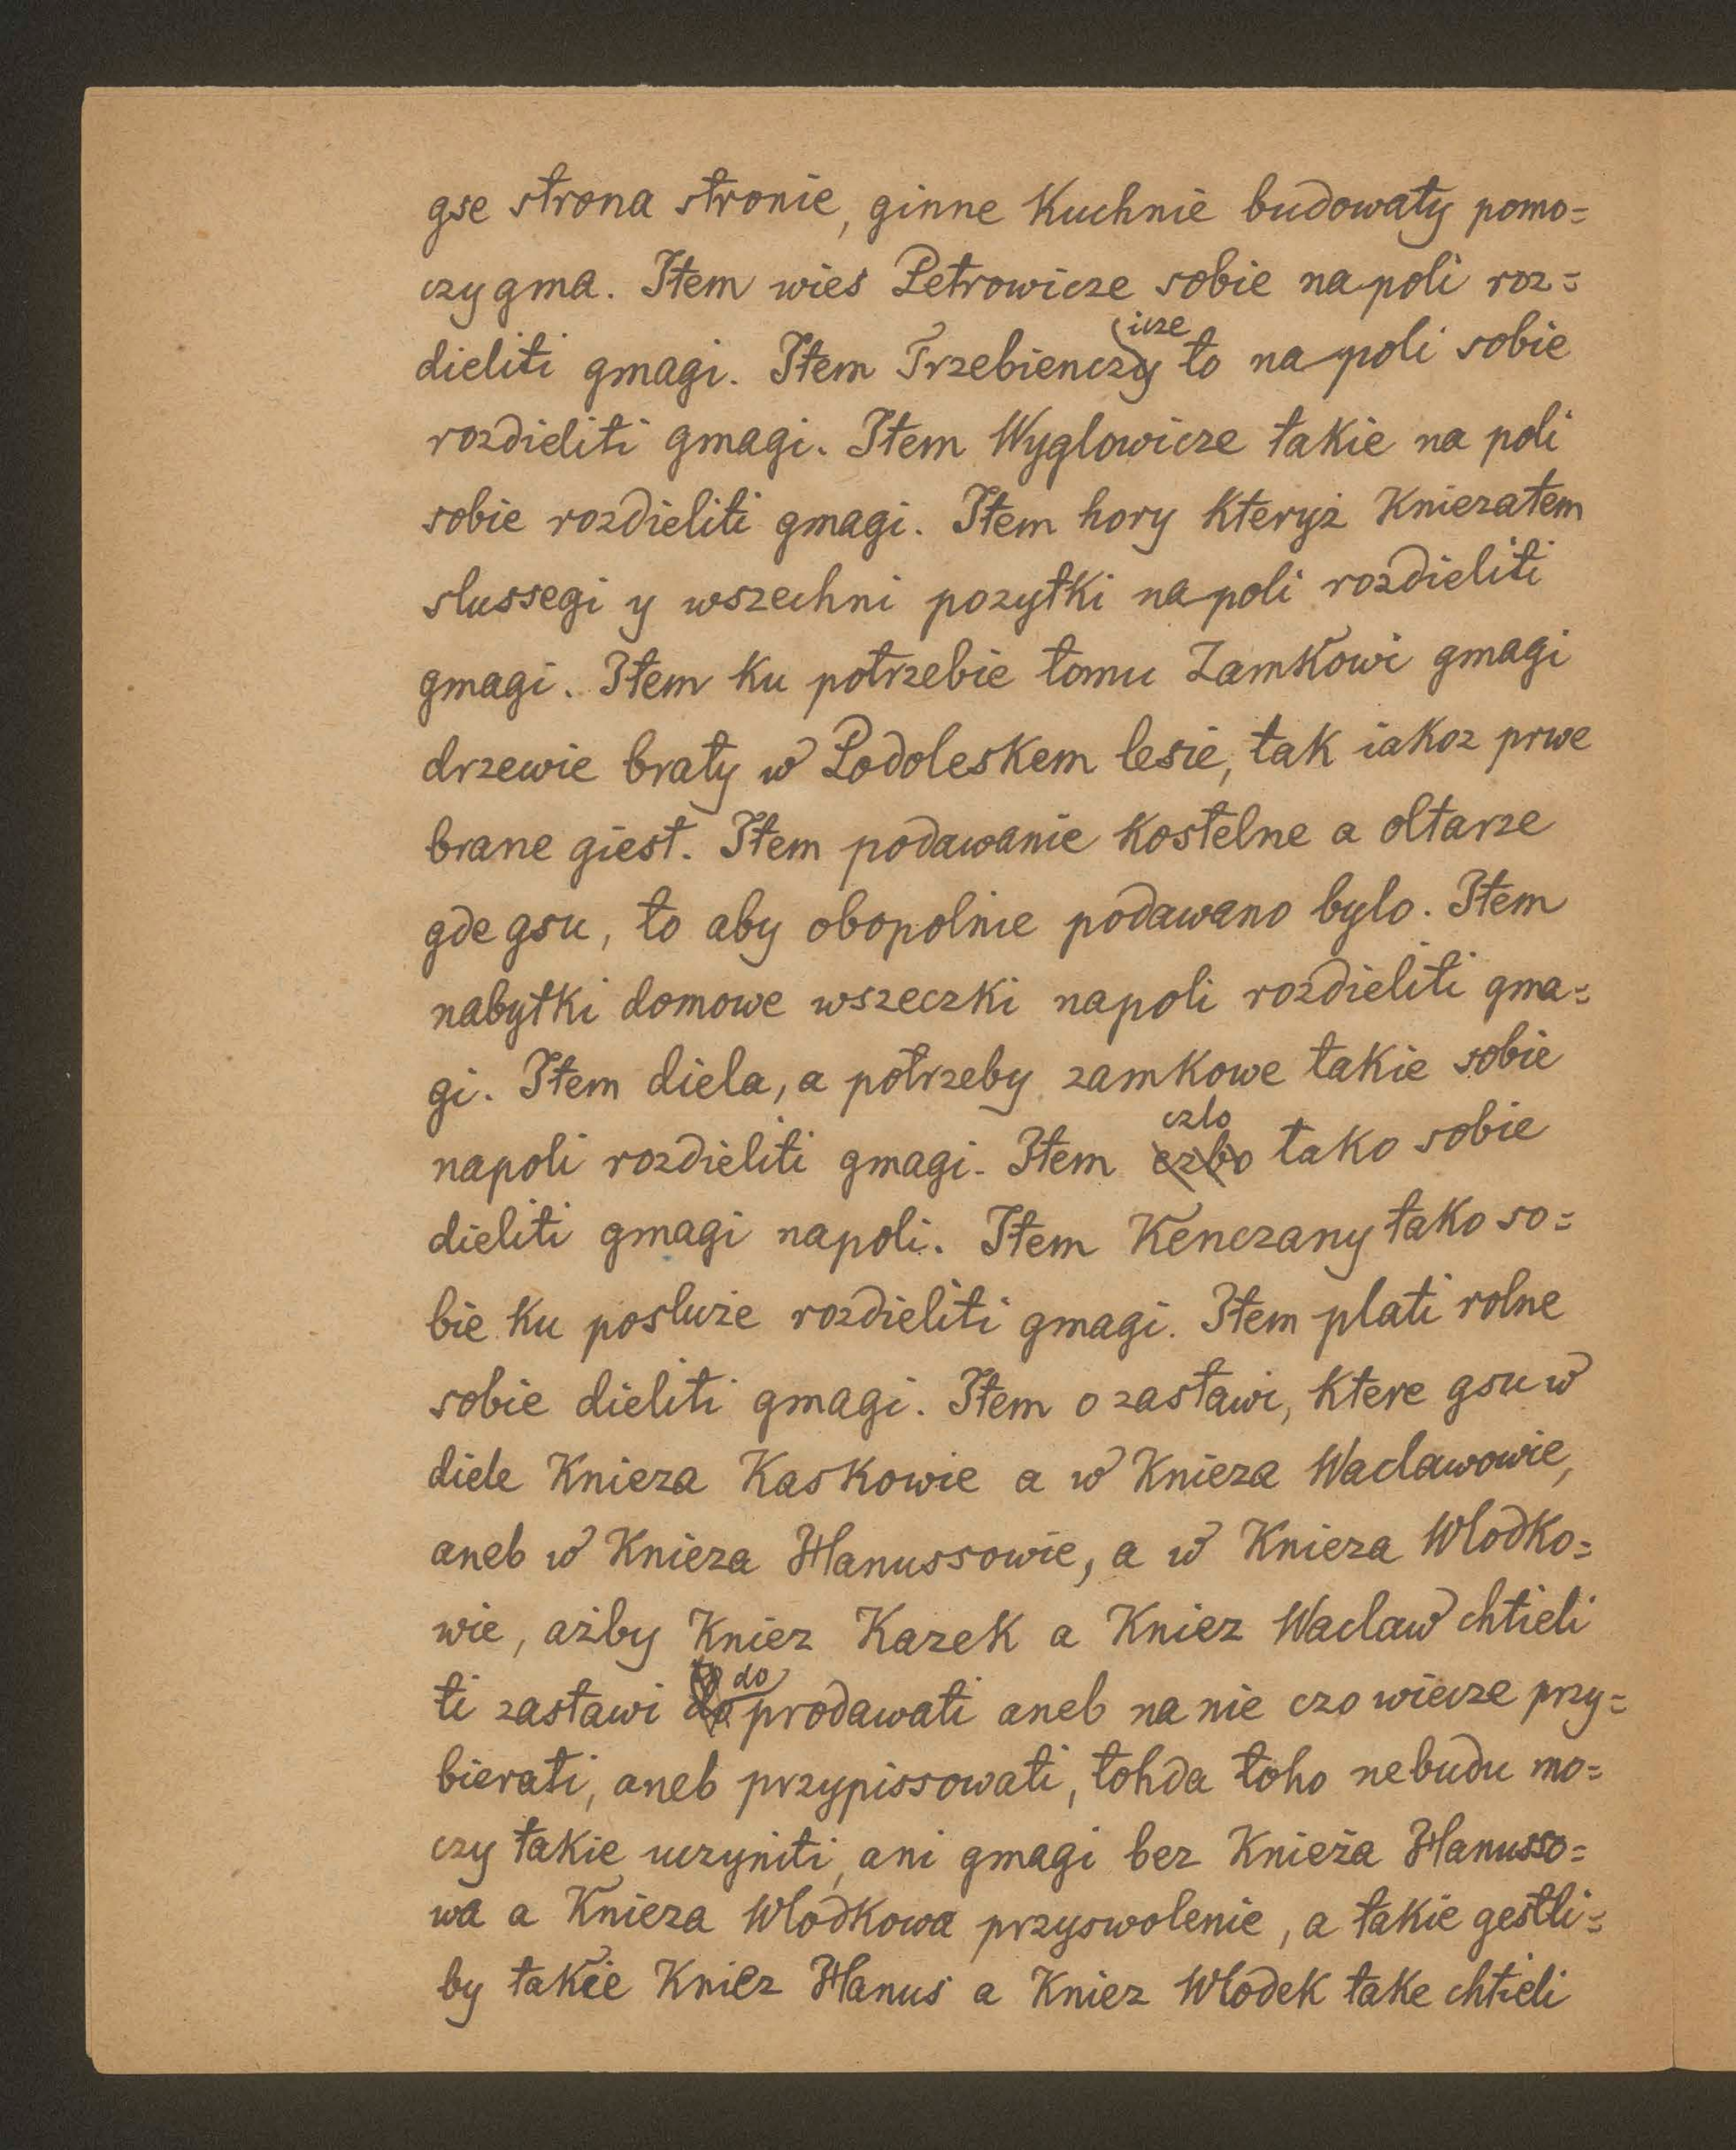 gse strona stronie, ginne Kuchnie budowaty pomo=
czy gma. Item wies Petrowicze sobie na poli roz=
dieliti gmagi. Item Trzebienczy icze to na poli sobie
rozdieliti gmagi. Item Wyglowicze takie na poli
sobie rozdieliti gmagi. Item hory Kteryż Kniezatem
slussegi y wszechni pozytki na poli rozdieliti
gmagi. Item Ku potrzebie tomu Zamkowi gmagi
drzewie braty w Podoleskem lesie, tak iakoz prwe
brane giest. Item podawanie Kostelne a oltarze
gde gsu, to aby obopolnie podawano bylo. Item
nabytki domowe wszeczki napoli rozdieliti gma=
gi. Item diela, a potrzeby zamkowe takie sobie
napoli rozdieliti gmagi. Item czlo tako sobie
dieliti gmagi napoli. Item Kenczany tako so=
bie ku posluże rozdieliti gmagi. Item plati rolne
sobie dieliti gmagi. Item o zastawi, ktere gsu w
diele Knieza Kaskowie a w Knieza Waclawowie,
aneb w Knieza Hanussowie, a w Knieza Wlodko=
wie, ażby Kniez Kazek a Kniez Waclaw chtieli
ti zastawi do prodawati aneb na nie czo wiecze przy=
bierati, aneb przypissowati, tohda toho nebudu mo=
czy takie uczyniti, ani gmagi bez Knieża Hanusso=
wa a Knieza Wlodkowa przyswolenie, a takie gestli=
by takie Kniez Hanus a Kniez Wlodek take chtieli